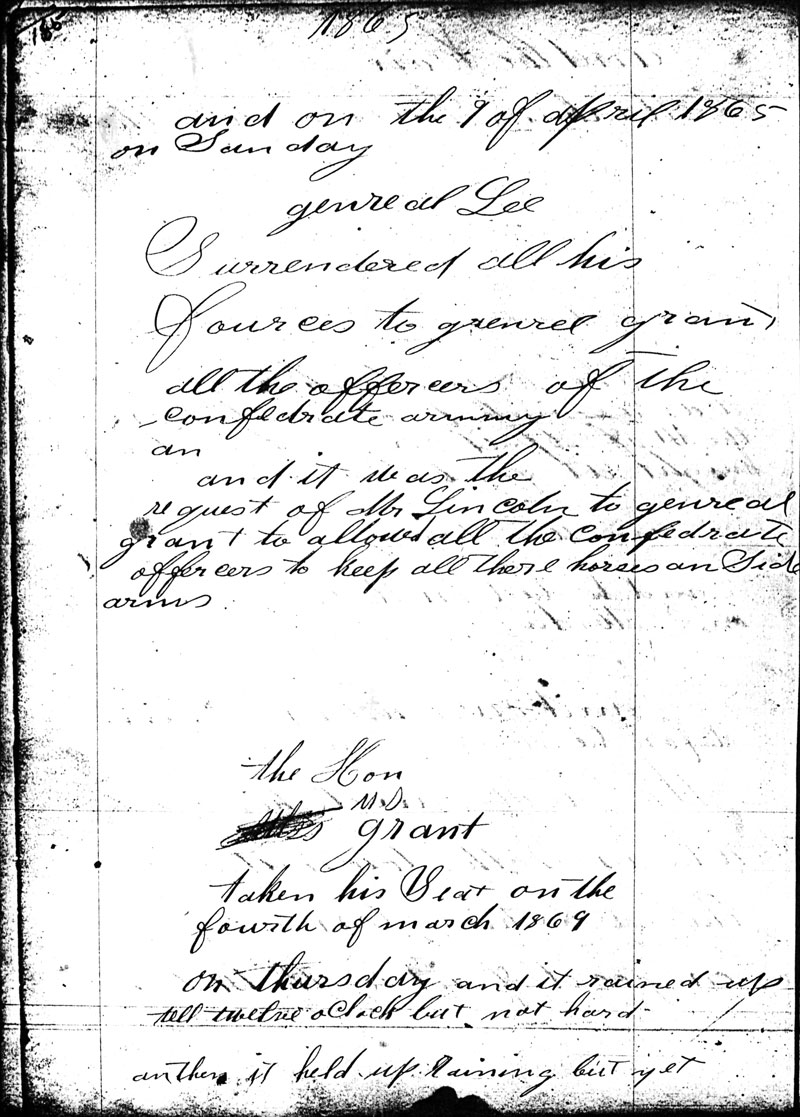 185
1865
and on the 9 of April 1865
on Sunday
genreal Lee
Surrendered all his
fources to grenrel grant
all the offercers of the
confedrate armmy
an
and it was the
request of Mr Lincoln to genreal
grant to allowed all the confedrate
offercers to keep all there horses an Side
arms
the Hon
U.S.
grant
taken his Seat on the
fourth of march 1869
on thursday and it rained up
tell twelve oClock but not hard
an then it held up Raining but yet